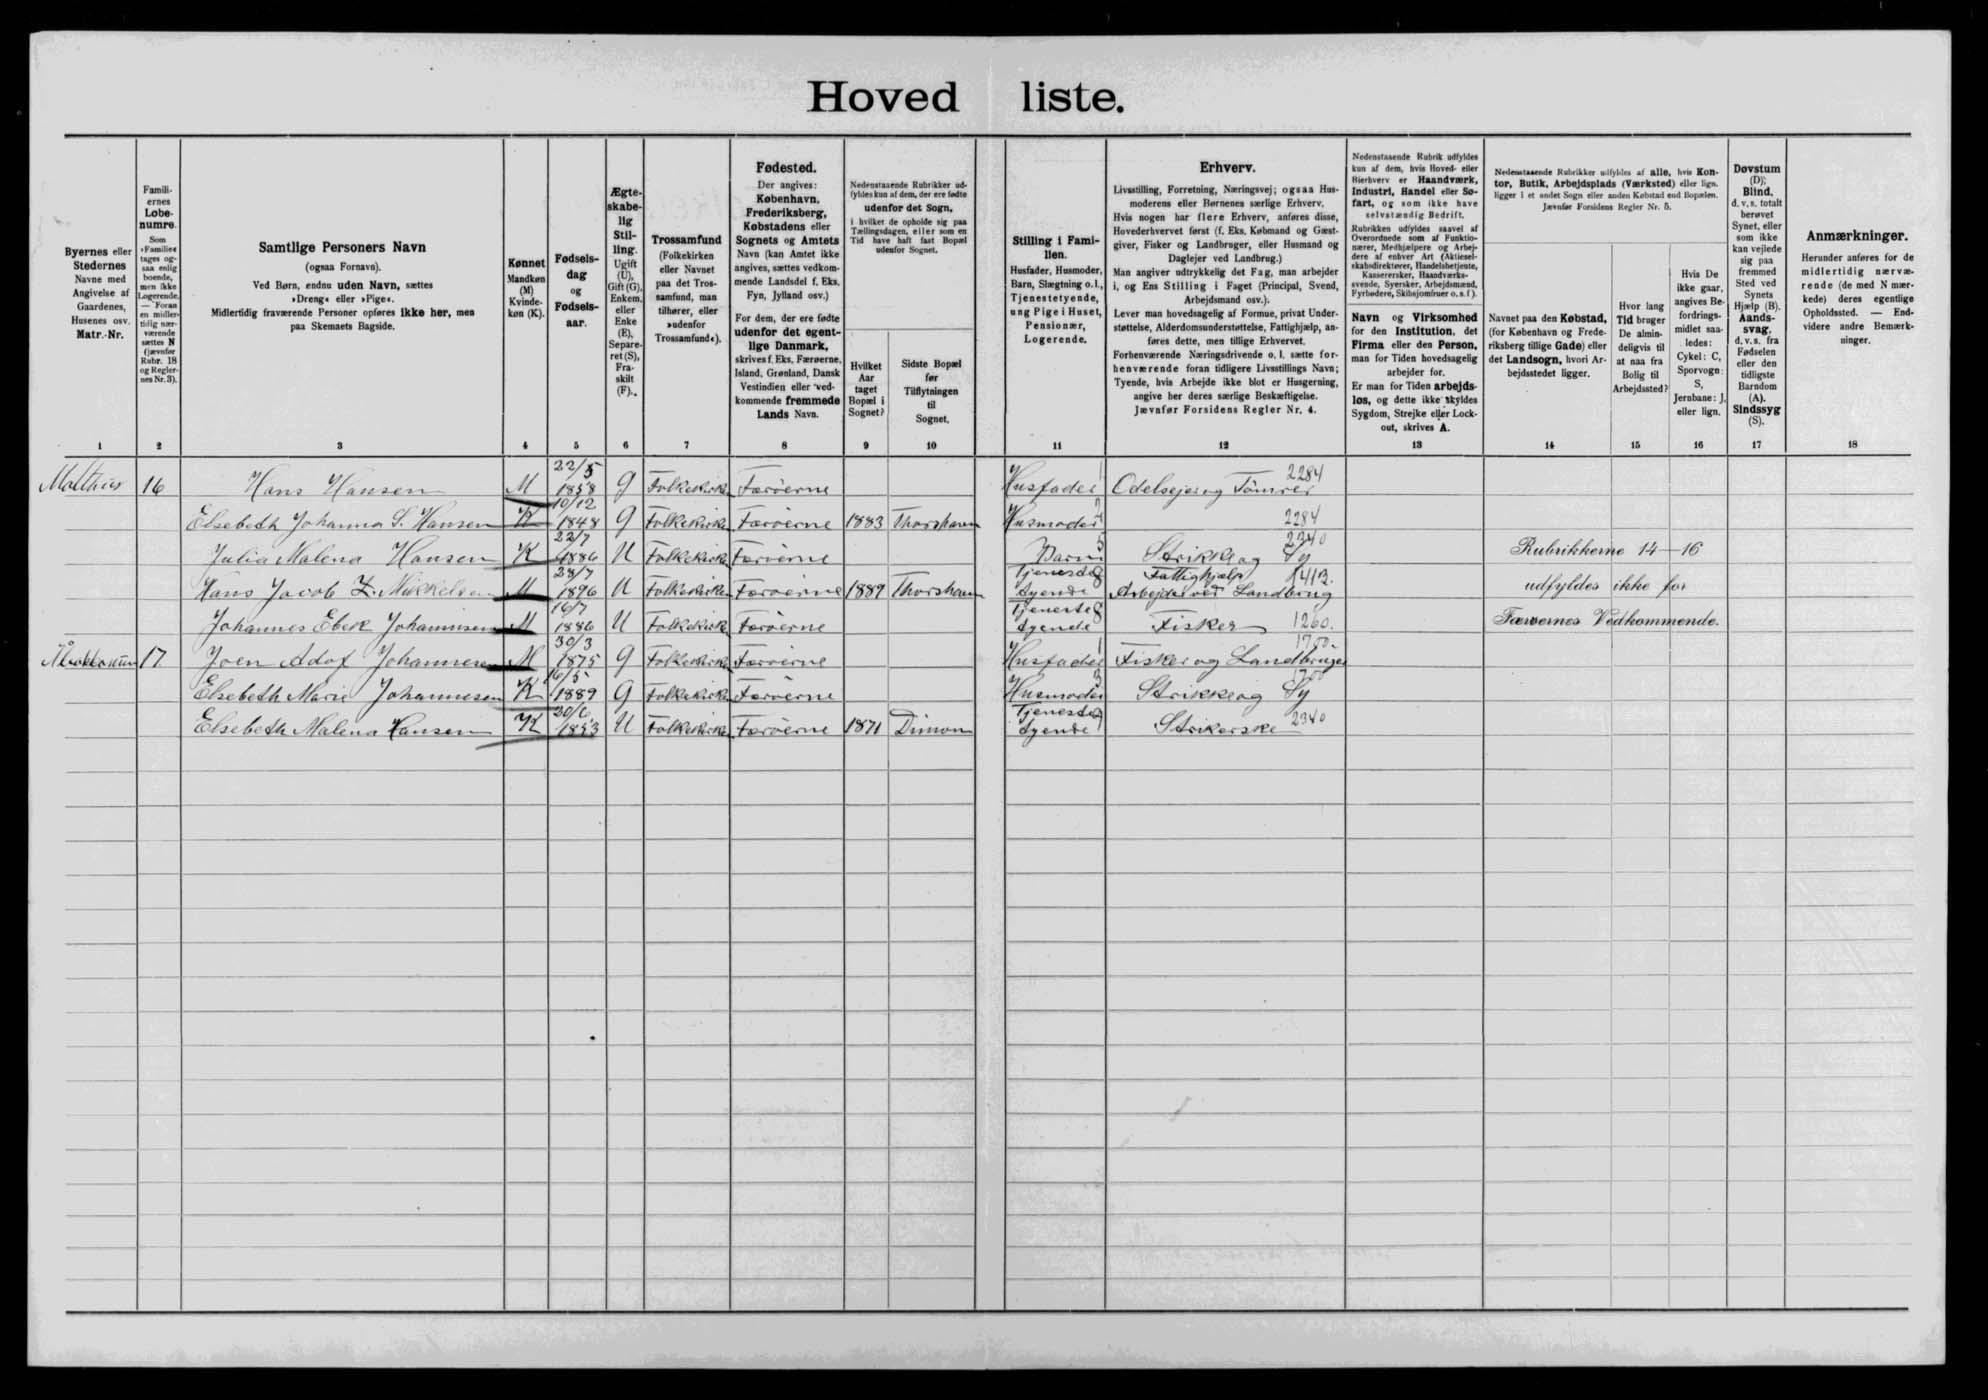 Hoved liste.
Byernes eller
Stedernes
Navne med
Angivelse af
Gaardenes,
Husenes osv.
Matr.-Nr.
Famili-
ernes
Løbe-
numre.
Som
»Familie«
tages og-
saa enlig
boende,
men ikke
Logerende.
— Foran
en midler-
tidig nær-
værende
sættes N
(jævnfør
Rubr. 18
og Regler-
nes Nr. 3).
Samtlige Personers Navn
(ogsaa Fornavn).
Ved Børn, endnu uden Navn, sættes
»Dreng« eller »Pige«.
Midlertidig fraværende Personer opføres ikke her, men
paa Skemaets Bagside.
Kønnet
Mandkøn
(M)
Kvinde-
køn (K).
Fødsels-
dag
og
Fødsels-
aar.
Ægte-
skabe-
lig
Stil-
ling.
Ugift
(U),
Gift (G),
Enkem.
eller
Enke
(E),
Separe-
ret (S),
Fra-
skilt
(F).
Trossamfund
(Folkekirken
eller Navnet
paa det Tros-
samfund, man
tilhører, eller
»udenfor
Trossamfund«).
Fødested.
Der angives:
København,
Frederiksberg,
Købstadens eller
Sognets og Amtets
Navn (kan Amtet ikke
angives, sættes vedkom-
mende Landsdel f. Eks.
Fyn, Jylland osv.)
For dem, der ere fødte
udenfor det egent-
lige Danmark,
skrives f. Eks. Færøerne,
Island, Grønland, Dansk
Vestindien eller ved-
kommende fremmede
Lands Navn.
Nedenstaaende Rubrikker ud-
fyldes kun af dem, der ere fødte
udenfor det Sogn,
i hvilket de opholde sig paa
Tællingsdagen, eller som en
Tid have haft fast Bopæl
udenfor Sognet.
Hvilket
Aar
taget
Bopæl i
Sognet?
Sidste Bopæl
før
Tilflytningen
til
Sognet.
Stilling i Fami-
lien.
Husfader, Husmoder,
Barn, Slægtning o. l.,
Tjenestetyende,
ung Pige i Huset,
Pensionær,
Logerende.
Erhverv.
Livsstilling, Forretning, Næringsvej; ogsaa Hus-
moderens eller Børnenes særlige Erhverv.
Hvis nogen har flere Erhverv, anføres disse,
Hovederhvervet først (f. Eks. Købmand og Gæst-
giver, Fisker og Landbruger, eller Husmand og
Daglejer ved Landbrug.)
Man angiver udtrykkelig det Fag, man arbejder
i, og Ens Stilling i Faget (Principal, Svend,
Arbejdsmand osv.).
Lever man hovedsagelig af Formue, privat Under-
støttelse, Alderdomsunderstøttelse, Fattighjælp, an-
føres dette, men tillige Erhvervet.
Forhenværende Næringsdrivende o. l. sætte for-
henværende foran tidligere Livsstillings Navn;
Tyende, hvis Arbejde ikke blot er Husgerning,
angive her deres særlige Beskæftigelse.
Jævnfør Forsidens Regler Nr. 4.
Nedenstaaende Rubrik udfyldes
kun af dem, hvis Hoved- eller
Bierhverv er Haandværk,
Industri, Handel eller Sø-
fart, og som ikke have
selvstændig Bedrift.
Rubrikken udfyldes saavel af
Overordnede som af Funktio-
nærer, Medhjælpere og Arbej-
dere af enhver Art (Aktiesel-
skabsdirektører, Handelsbetjente,
Kasserersker, Haandværks-
svende, Syersker, Arbejdsmænd,
Fyrbødere, Skibsjomfruer o. s. f.).
Navn og Virksomhed
for den Institution, det
Firma eller den Person,
man for Tiden hovedsagelig
arbejder for.
Er man for Tiden arbejds-
løs, og dette ikke skyldes
Sygdom, Strejke eller Lock-
out, skrives A.
Nedenstaaende Rubrikker udfyldes af alle, hvis Kon-
tor, Butik, Arbejdsplads (Værksted) eller lign.
ligger i et andet Sogn eller anden Købstad end Bopælen.
Jævnfør Forsidens Regler Nr. 5.
Navnet paa den Købstad,
(for København og Frede-
riksberg tillige Gade) eller
det Landsogn, hvori Ar-
bejdsstedet ligger.
Hvor lang
Tid bruger
De almin-
deligvis til
at naa fra
Bolig til
Arbejdssted?
Hvis De
ikke gaar,
angives Be-
fordrings-
midlet saa-
ledes:
Cykel: C,
Sporvogn:
S,
Jernbane: J,
eller lign.
Døvstum
(D);
Blind,
d. v. s. totalt
berøvet
Synet, eller
som ikke
kan vejlede
sig paa
fremmed
Sted ved
Synets
Hjælp (B).
Aands-
svag,
d. v. s. fra
Fødselen
eller den
tidligste
Barndom
(A).
Sindssyg
(S).
Anmærkninger.
Herunder anføres for de
midlertidig nærvæ-
rende (de med N mær-
kede) deres egentlige
Opholdssted. — End-
videre andre Bemærk-
ninger.
1 2 3 4 5 6 7 8 9 10 11 12 13 14 15 16 17 18
16 Hans Hansen M 22/5 1858 G Folkekirke Færøerne Husfader 1 Odelsejer og Tömrer 2284
Elsebeth Johanna S. Hansen K 10/12 1848 G Folkekirke Færøerne 1883 Thorshavn Husmoder 2284
Julia Malena Hansen K 22/7 1886 U Folkekirke Færøerne Barn 5 Strikke og Sy 2340 Rubrikkerne 14—16
Hans Jacob Z. Mikkelsen M 28/7 1896 U Folkekirke Færøerne 1889 Thorshavn Tjeneste 8 tyende Fattighjælp Arbejder ved Landbrug 1413. udfyldes ikke for
Johannes Ebek Johannesen M 16/7 1886 U Folkekirke Færøerne Tjeneste 8 tyende Fisker 1260. Færøernes Vedkommende.
17 Joen Adof Johannesen M 30/3 1875 G Folkekirke Færøerne Husfader 1 Fisker og Landbruger 1700.
Elsebeth Marie Johannesen K 16/5 1889 G Folkekirke Færøerne Husmoder 3 Strikke og Sy 1700
Elsebeth Malena Hansen K 20/6 1853 U Folkekirke Færøerne 1871 Dimon Tjeneste tyende Strikerske 2340